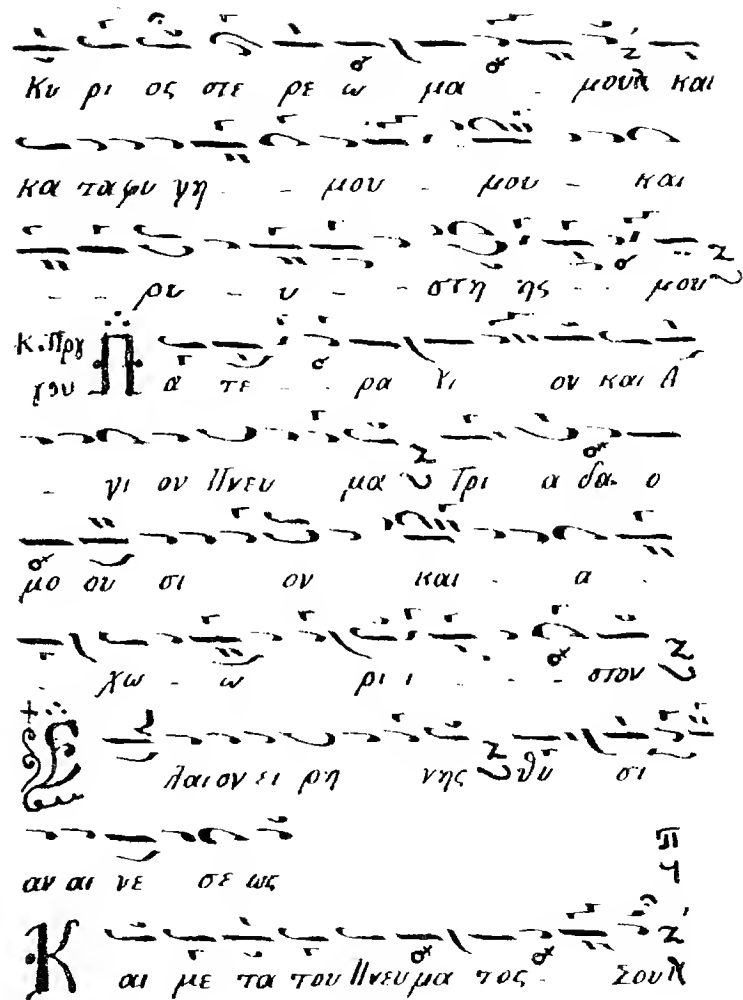 Κυ ρι ος στε ρε ω μα - μου και
κα τα φυ γη - - μου - μου - και
- - ρυ - υ - - στη ης - μου
Κ. Πργ Πα τε - - ρα Υι ον και Α
γου
- γι ον Πνευ μα Τρι α δα - ο
μο ου σι ον και - α -
- χω - ω ρι ι - - - στον
Ε λαι ον ει ρη νης θυ σι
αν αι νε σε ως
Και με τα του Πνευ μα τος - Σου